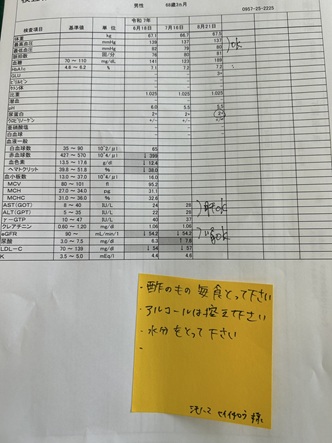 男性 68歳3ヵ月 0957-25-2225
令和 7年
検査項目 基準値 単位 6月16日 7月16日 8月21日
体重 kg 67.1 66.7 67.5
最高血圧 mmHg 128 137 133
最低血圧 mmHg
脈拍数 回/分
血糖 70 ～ 110 mg/dl 141 123 188
HbA1c 4.6 ～ 6.2 % 7.1 7.2 7.2
GLU
ビリルビン
ケトン体
比重 1.025 1.025 1.025
潜血
pH 6.0 5.5 5.5
尿蛋白
ウロビリノーゲン
亜硝酸塩
白血球
血液一般
白血球数 35 ～ 90 10^2/μl 65
赤血球数 427 ～ 570 10^4/μl ↓ 399
血色素 13.5 ～ 17.6 g/dl ↓ 12.4
ヘマトクリット 39.8 ～ 51.8 % ↓ 38.0
血小板数 13.0 ～ 37.0 10^4/μl 16.0
MCV 80 ～ 101 fl 95.2
MCH 27.0 ～ 34.0 pg 31.1
MCHC 31.0 ～ 36.0 % 32.6
AST(GOT) 8 ～ 40 IU/L 24 28
ALT(GPT) 5 ～ 35 IU/L 22 28
γ-GTP 10 ～ 47 IU/L 40 37
クレアチニン 0.60 ～ 1.20 mg/dl 1.06 1.06
eGFR 90 ～ mL/min/1 ↓ 54.2 ↓ 54.2
尿酸 3.0 ～ 7.5 mg/dl 6.3 ↑ 7.8
LDL-C 70 ～ 139 mg/dl ↓ 54 ↓ 57
K 3.5 ～ 5.0 mEq/l 4.4 4.6
OK
肝OK
腎OK
・酢のもの 毎食とって下さい
・アルコールは控えて下さい
・水分をとって下さい